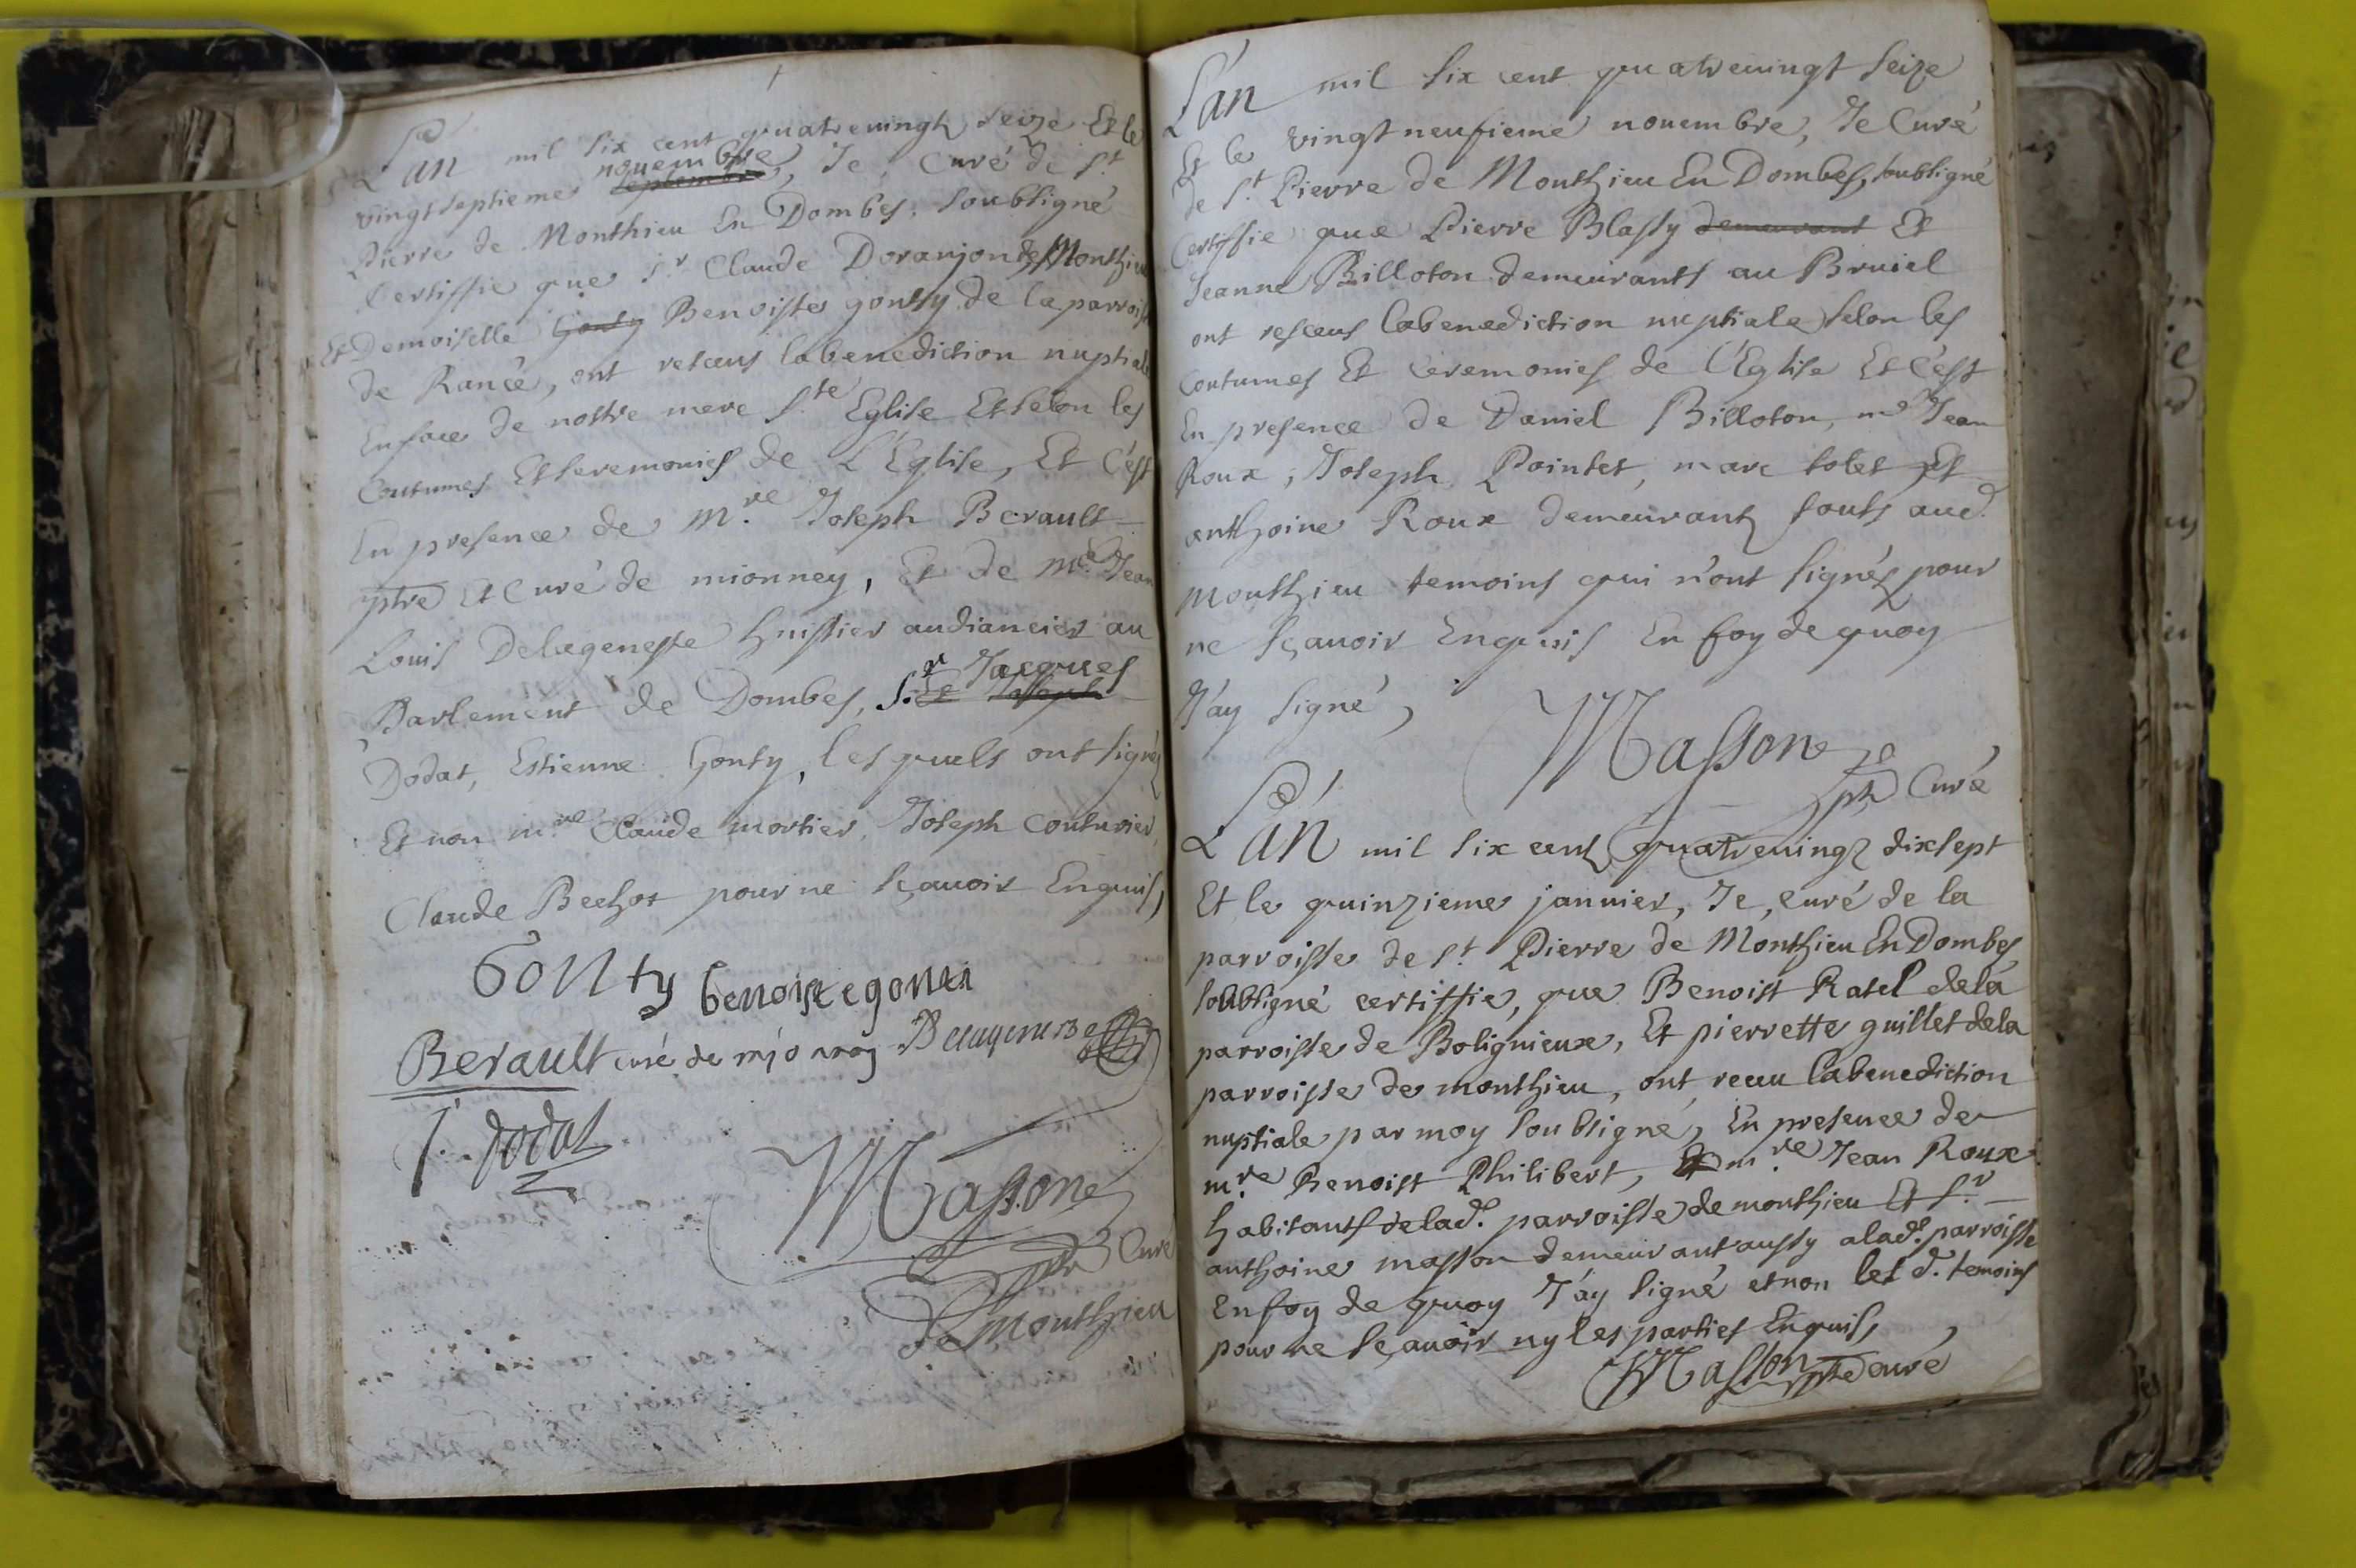 L'an mil six cent quatrevingt seize Et le
vingtseptieme novembre septembre, Je, Curé de St
Pierre de Monthieu En Dombes, soubsigné
Certiffie que Sr Claude Doranjon de Monthieu
Et Demoiselle Gonty Benoiste gonty de la parroisse
de Rancé, ont resceus la benediction nuptiale
En face de nostre mere Ste Eglise Et selon les
Coutumes Et seremonies de L'Eglise, Et C'est
En presence de Mre Joseph Berault
ptre Et Curé de mionney, Et de Me Jean
Louis Delageneste huissier audiancier au
Parlement de Dombes, Sr Jacques
Dodat, Estienne Gonty, les quels ont signéz
Et non mre Claude mortier, Joseph Couturier,
Claude Bechot pour ne sçavoir Enquis,
Gonty benoiste gonti
Berault curé de mjonay Delageneste
J. dodat
Massone
ptre Curé
de Monthieu
L'an mil six cent quatrevingt seize
Et le vingtneufieme novembre, Je Curé
de St Pierre de Monthieu En Dombes, soubsigné
Certiffie que Pierre Blassy demeurant Et
Jeanne Billoton demeurants au Bruiel
ont resceus la benediction nuptiale selon les
Coutumes Et Ceremonies de l'Eglise Et C'est
En presence de Daniel Billoton, me Jean
Roux, Joseph Pointet, marc tolet Et
anthoine Roux demeurant souts aud.
monthieu temoins qui n'ont signés pour
ne sçavoir Enquis En foy de quoy
J'ay signé,
Massone
ptre Curé
L'an mil six cent quatrevingt dixsept
Et le quinzieme janvier, Je, curé de la
parroisse de St Pierre de Monthieu En Dombes
soubsigné certiffie, que Benoist Ratel de la
parroisse de Bolignieux, Et pierrette guillet de la
parroisse de monthieu, ont receu la benediction
nuptiale par moy soubsigné, En presence de
mre Benoist Philibert, Et mre Jean Roux
habitants de lad. parroisse de monthieu Et Sr
anthoine masson demeurant aussy a lad. parroisse
En foy de quoy J'ay signé et non les d. temoins
pour ne sçavoir ny les parties Enquis,
Masson ptre curé